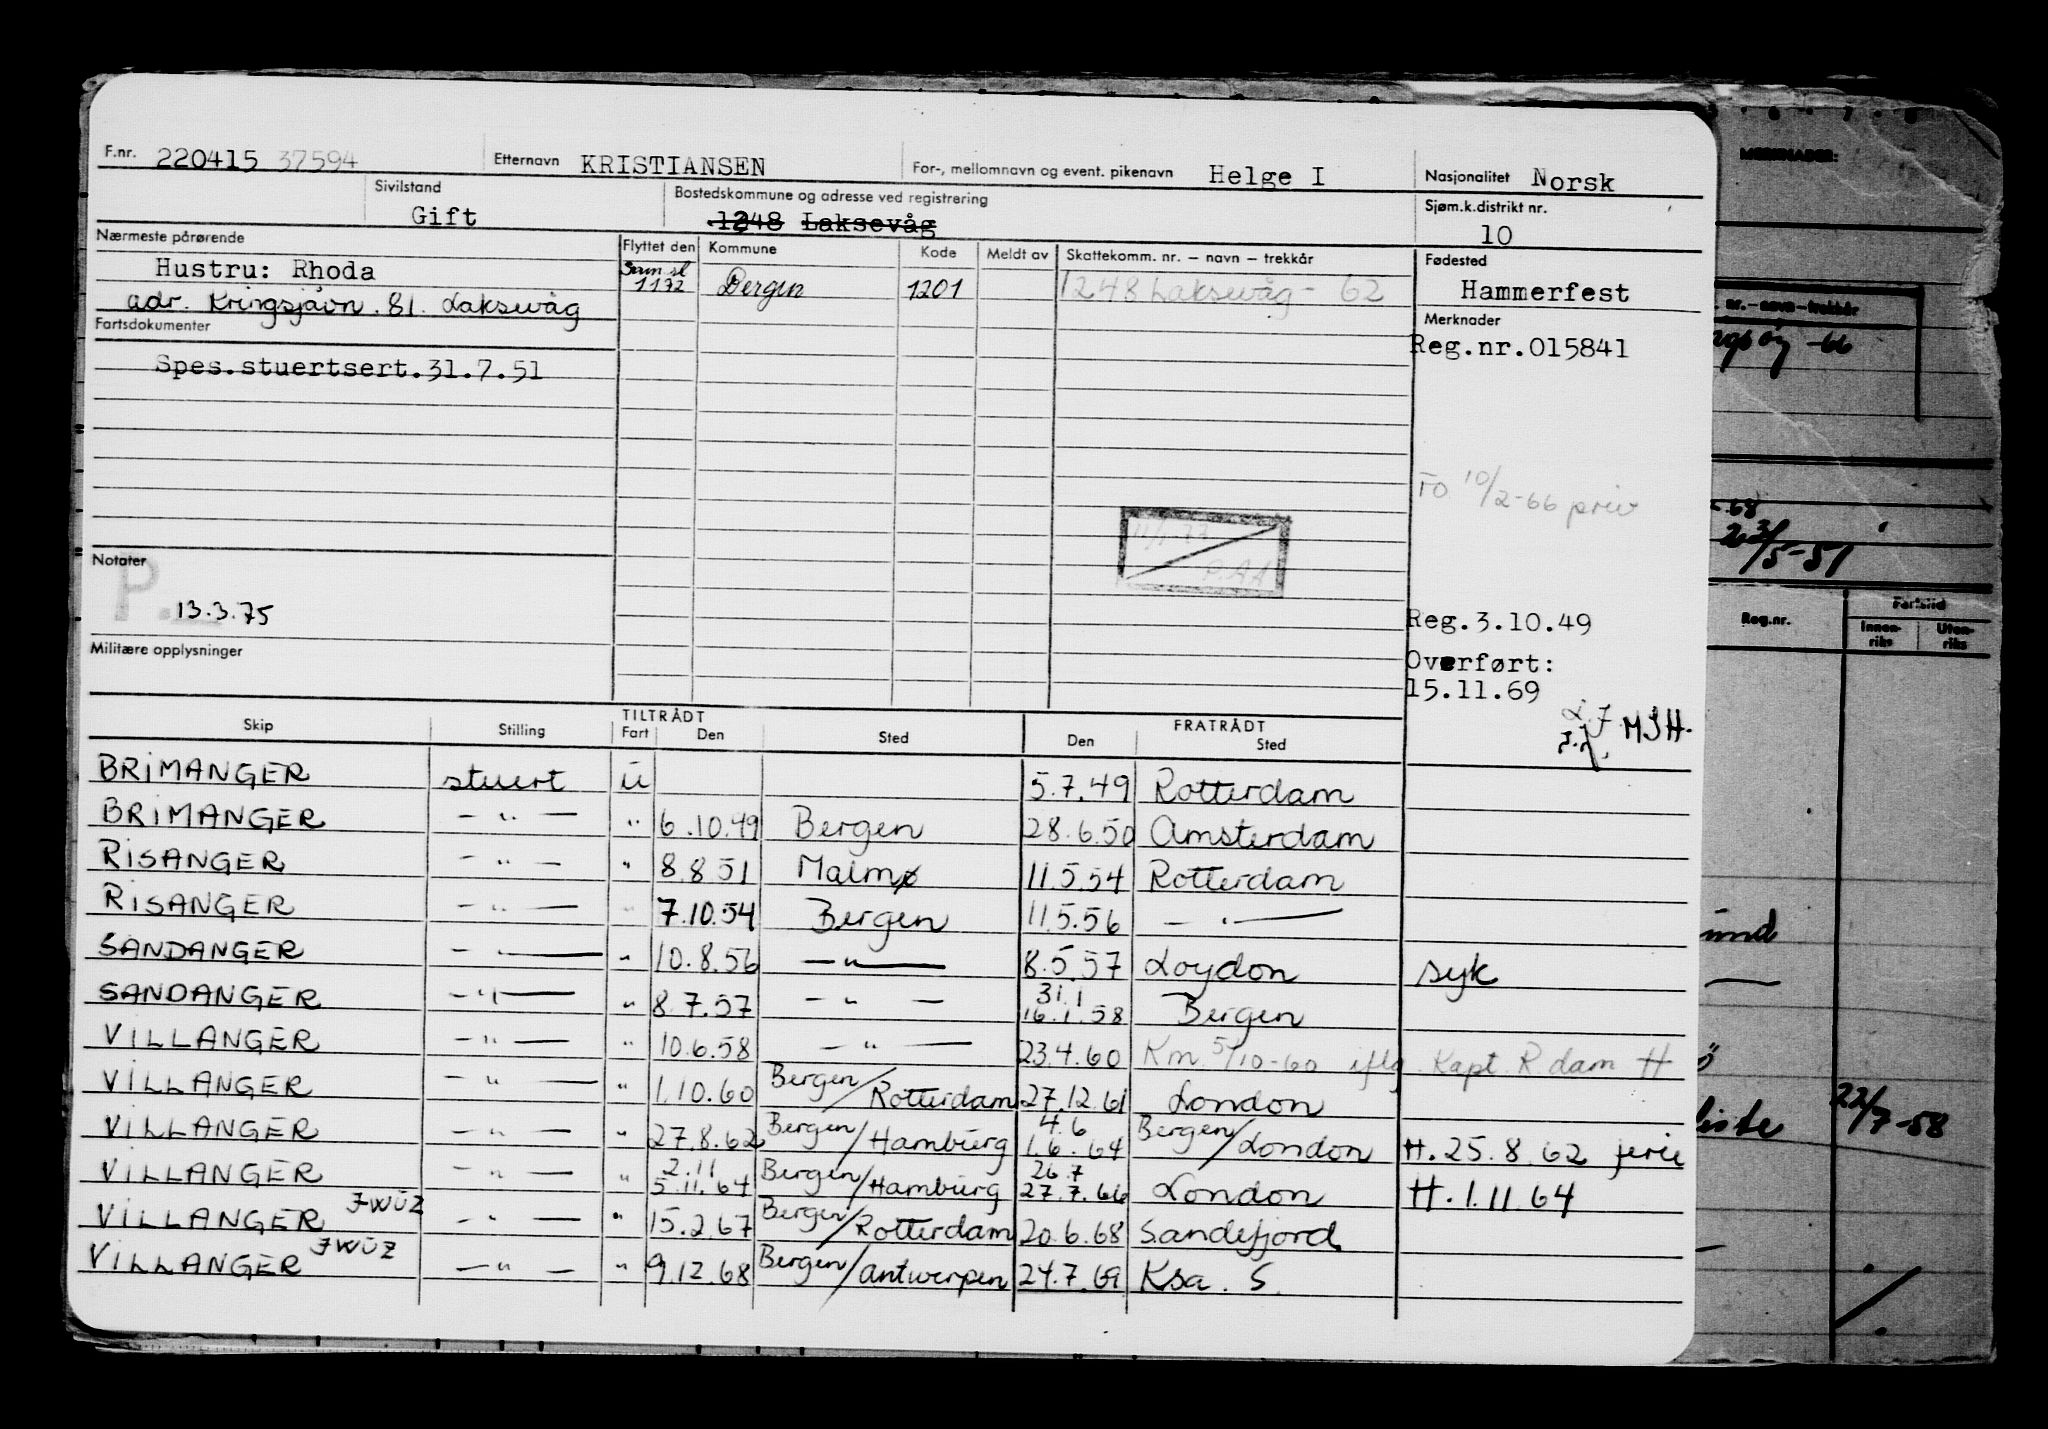 F.nr. 220415 37594 Etternavn KRISTIANSEN For-, mellomnavn og event. pikenavn Helge I Nasjonalitet Norsk
Sivilstand Gift Bostedskommune og adresse ved registrering 1248 Laksevåg Sjøm.k.distrikt nr. 10
Nærmeste pårørende Flyttet den Kommune Kode Meldt av Skattekomm. nr. – navn – trekkår Fødested
Hustru: Rhoda 1172 Bergen 1201 1248 Laksevåg - 62 Hammerfest
adr. Kringsjåvn. 81. Laksevåg
Fartsdokumenter Merknader
Spes.stuertsert.31.7.51 Reg.nr.015841
FO 10/2-66 priv
P.AA
Notater
P. 13.3.75
Reg.3.10.49
Militære opplysninger
Overført:
15.11.69
MSH.
TILTRÅDT FRATRÅDT
Skip Stilling Fart Den Sted Den Sted
BRIMANGER stuert u 5.7.49 Rotterdam
BRIMANGER – " – " 6.10.49 Bergen 28.6.50 Amsterdam
RISANGER – " – " 8.8 51 Malmø 11.5.54 Rotterdam
RISANGER – " – " 7.10.54 Bergen 11.5.56 – " –
SANDANGER – " – " 10.8.56 – " – 8.5.57 Loydon syk
SANDANGER – " – " 8.7.57 – " – 31.1 16.1.58 Bergen
VILLANGER – " – " 10.6.58 – " – 23.4.60 Km 5/10-60 iflg. Kapt. R dam H
VILLANGER – " – " 1.10.60 Bergen/Rotterdam 27.12.61 London
VILLANGER – " – " 27.8.62 Bergen/Hamburg 4.6 1.6.64 Bergen/London H.25.8.62 ferie
VILLANGER – " – " 2.11 5.11.64 Bergen/Hamburg 26.7 27.7.66 London H.1.11.64
VILLANGER JWUZ – " – " 15.2.67 Bergen/Rotterdam 20.6.68 Sandefjord
VILLANGER JWUZ – " – " 9.12.68 Bergen/Antwerpen 24.7.69 Ksa. S.
MERKNADER:
nr.–navn–trekkår
-66
23/5-51
Reg.nr. Fartstid
Innen-riks Uten-riks
22/7-58